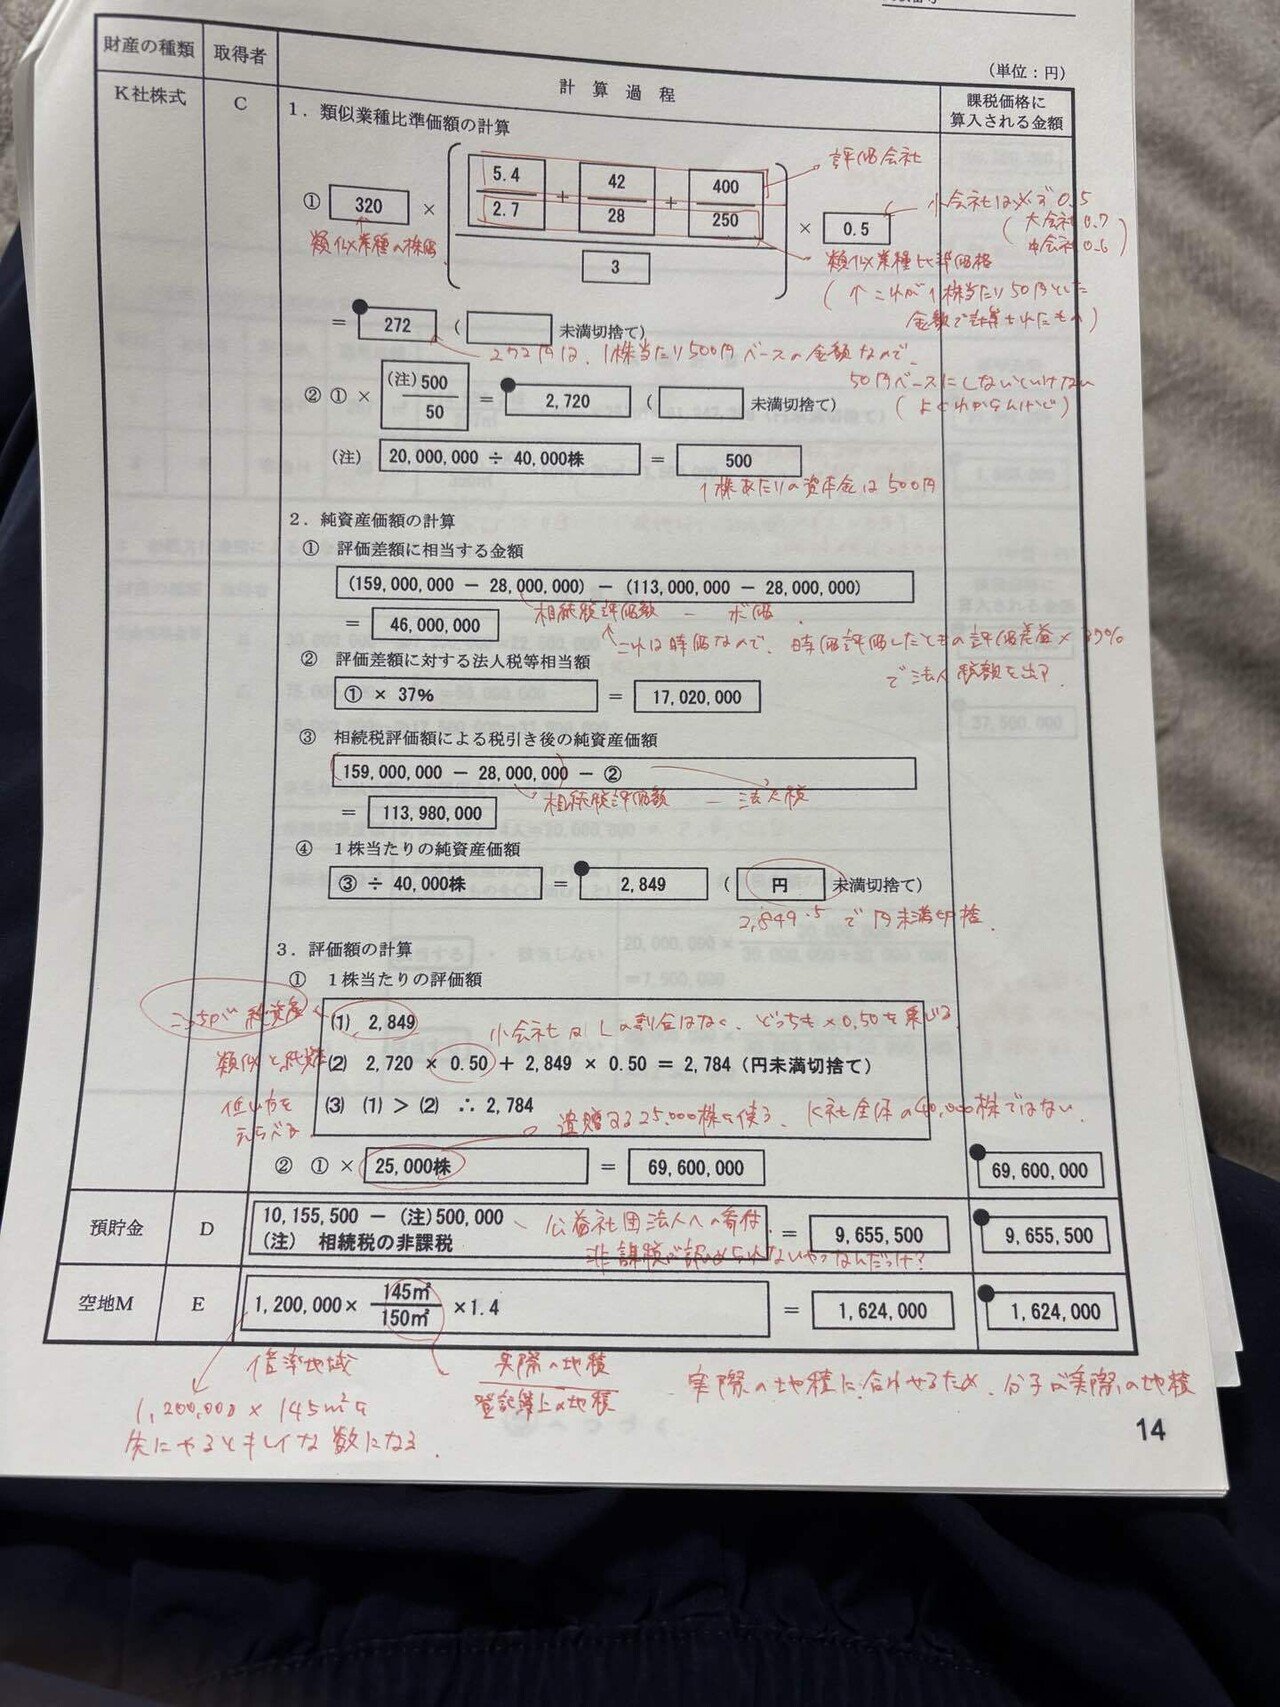 (単位：円)
財産の種類 取得者 計算過程 課税価格に算入される金額
K社株式 C
1．類似業種比準価額の計算
評価会社
① 320 × ( 5.4/2.7 + 42/28 + 400/250 ) / 3 × 0.5
小会社は必ず0.5
(大会社0.7
中会社0.6)
類似業種の株価
類似業種比準価格
(↑これが1株当たり50円とした
金額で計算されたもの)
= 272 ( 未満切捨て)
272円は、1株当たり500円ベースの金額なので、
50円ベースにしないといけない
(よくわからんけど)
② ① × (注)500/50 = 2,720 ( 未満切捨て)
(注) 20,000,000 ÷ 40,000株 = 500
1株あたりの資本金は500円
2．純資産価額の計算
① 評価差額に相当する金額
(159,000,000 − 28,000,000) − (113,000,000 − 28,000,000)
相続税評価額 − ボ価
= 46,000,000
↑これは時価なので、時価評価したときの評価差益×37%
で法人税額を出す
② 評価差額に対する法人税等相当額
① × 37% = 17,020,000
③ 相続税評価額による税引き後の純資産価額
159,000,000 − 28,000,000 − ②
相続税評価額 − 法人税
= 113,980,000
④ 1株当たりの純資産価額
③ ÷ 40,000株 = 2,849 ( 円 未満切捨て)
2,849.5で円未満切捨
3．評価額の計算
① 1株当たりの評価額
こっちが純資産
(1) 2,849
小会社はLの割合はなく、どっちも×0.50を乗じる
類似と純資
(2) 2,720 × 0.50 + 2,849 × 0.50 = 2,784 (円未満切捨て)
低い方を
えらべる
(3) (1) > (2) ∴ 2,784
遺贈する25,000株を使う K社全体の40,000株ではない
② ① × 25,000株 = 69,600,000 69,600,000
預貯金 D 10,155,500 − (注)500,000 = 9,655,500 9,655,500
(注) 相続税の非課税
公益社団法人への寄付
非課税が認められないやつなんだっけ？
空地M E 1,200,000× 145㎡/150㎡ ×1.4 = 1,624,000 1,624,000
倍率地域
実際の地積
登記簿上の地積
実際の地積に合わせるため、分子が実際の地積
1,200,000 × 145㎡を
先にやるとキレイな数になる
14